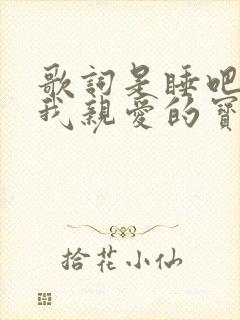 歌詞是睡吧
我親愛的寶
拾花小仙